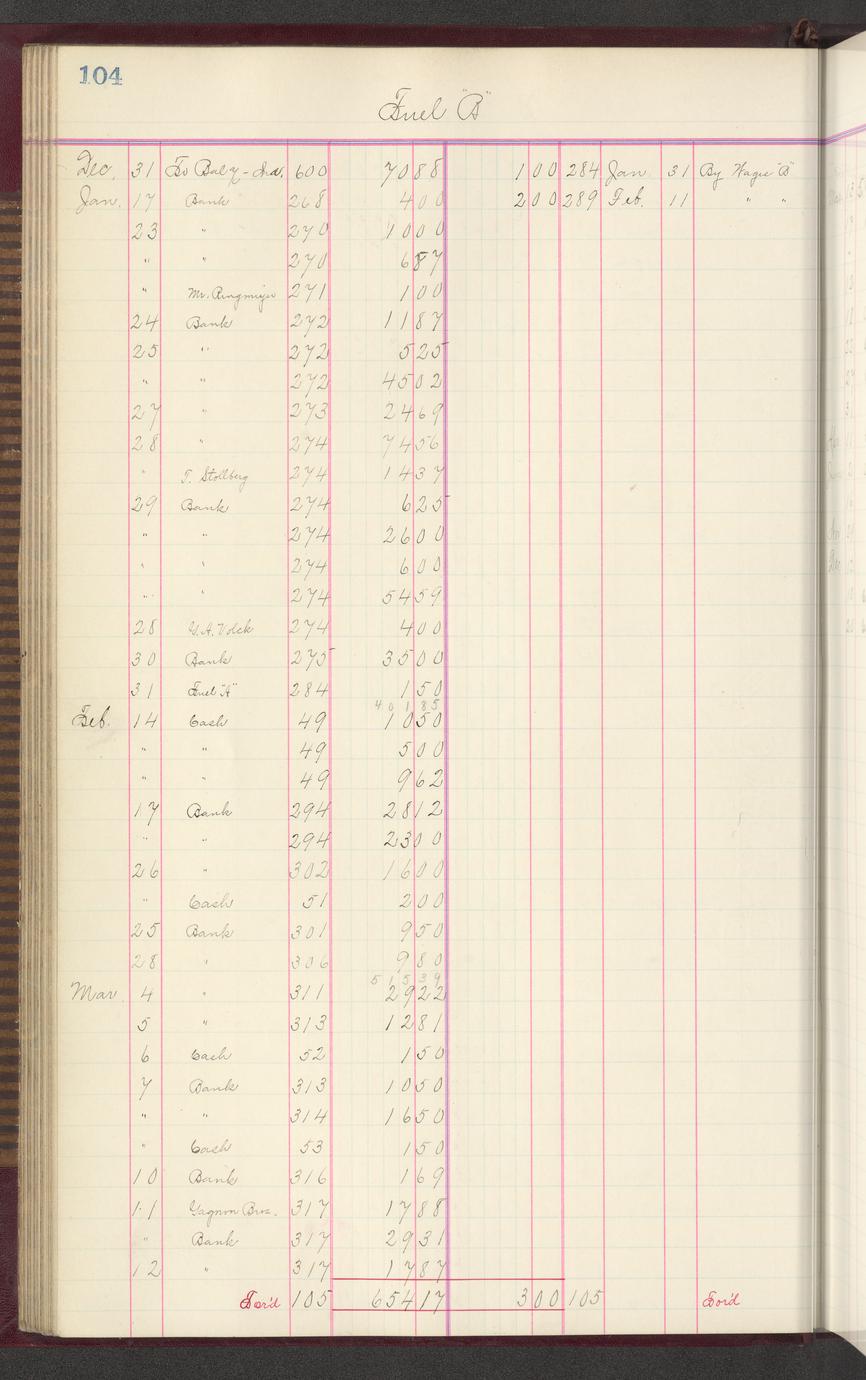 104
Fuel "B"
Dec. 31 To Bal'y - Ind. 600 70 88 1 00 284 Jan. 31 By Wages "B"
Jan. 17 Bank 268 4 00 2 00 289 Feb. 11 " "
23 " 270 10 00
" " 270 6 87
" Mr. Ringmeyer 271 1 00
24 Bank 272 11 87
25 " 272 5 25
" " 272 45 02
27 " 273 24 69
28 " 274 74 56
" T. Stollberg 274 14 37
29 Bank 274 6 25
" " 274 26 00
" " 274 6 00
" " 274 54 59
28 G.A. Volck 274 4 00
30 Bank 275 35 00
31 Fuel "A" 284 1 50
401 85
Feb. 14 Cash 49 10 50
" " 49 5 00
" " 49 9 62
17 Bank 294 28 12
" " 294 23 00
26 " 302 16 00
" Cash 51 2 00
25 Bank 301 9 50
28 " 306 9 80
515 39
Mar. 4 " 311 29 22
5 " 313 12 81
6 Cash 52 1 50
7 Bank 313 10 50
" " 314 16 50
" Cash 53 1 50
10 Bank 316 1 69
11 Gagnon Bros. 317 17 88
" Bank 317 29 31
12 " 317 17 87
For'd 105 654 17 3 00 105 For'd